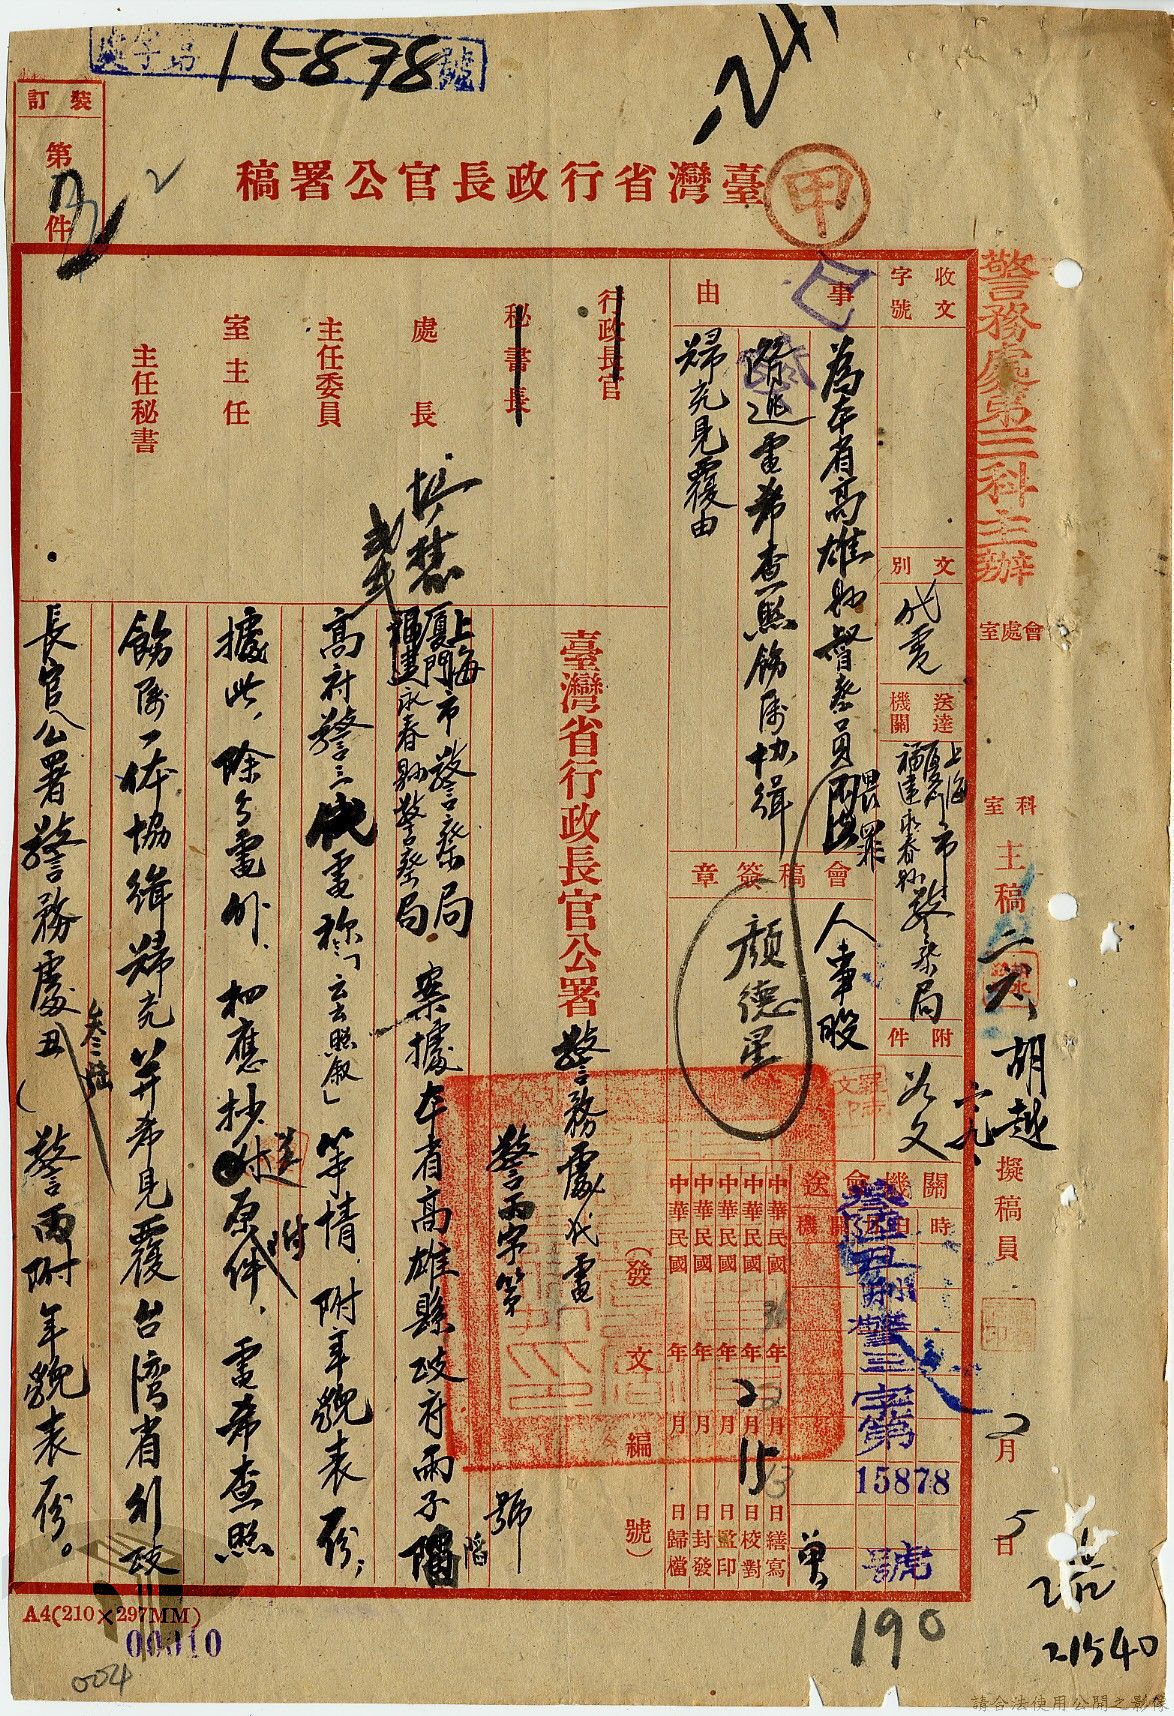 字第15878號
24
裝訂
第 件
2
臺灣省行政長官公署稿
甲
警務處第三科主辦
收文
字號
文別
代電
送達機關
上海
廈門市
福建永春縣警察局
附件
如文
事由
為本省高雄縣督察員 畏罪
潛逃電希查照飭屬協緝
歸究見覆由
會稿簽章
人事股
顏德星
行政長官
秘書長
處長
主任委員
室主任
主任秘書
會處室
科室
主稿
胡越
擬稿員
2月5日
關機會送
時
機關
警三字第
15878
號
中華民國36年 月 日繕寫
中華民國 年2月13日校對
中華民國 年2月15日監印
中華民國 年 月 日封發
中華民國 年 月 日歸檔
(發文編號)
臺灣省行政長官公署警務處代電
警丙字第 號
上海市警察局
廈門
福建永春縣警察局
案據本省高雄縣政府丙子
高府警三代電稱「云云照敘」等情,附年貌表一份,
據此,除分電外,相應抄送原件,電希查照
飭屬一体協緝歸究並希見覆台灣省行政
長官公署警務處丑(警丙附年貌表一份。
A4(210×297MM)
00010
004
190
21540
請合法使用公開之影像